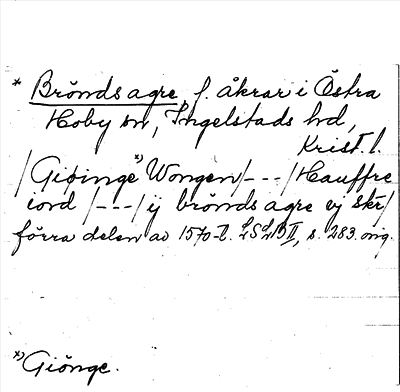 * Bröndsagre f. åkrar i Östra
Hoby sn, Ingelstads hd,
Krist. l.
/Giöinge *) Wongen/---/Hauffre
iord /---/ ij bröndsagre ej skr/
förra delen av 1570-t. LSLB II, s. 283. orig.
*) Giönge.